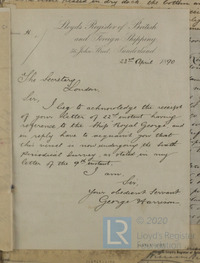 Lloyd's Register of British
and Foreign Shipping,
John Street, Sunderland
22nd April 1890
The Secretary
London.
Sir,
I beg to acknowledge the receipt
of your letter of 22nd instant having
reference to the Ship "Royal George" and
in reply have to acquaint you that
this vessel is now undergoing the
periodical Survey, as stated in my
letter of the 9th instant.
I am
Sir,
Your obedient Servant
George Harrison
© 2020
Lloyd's Register